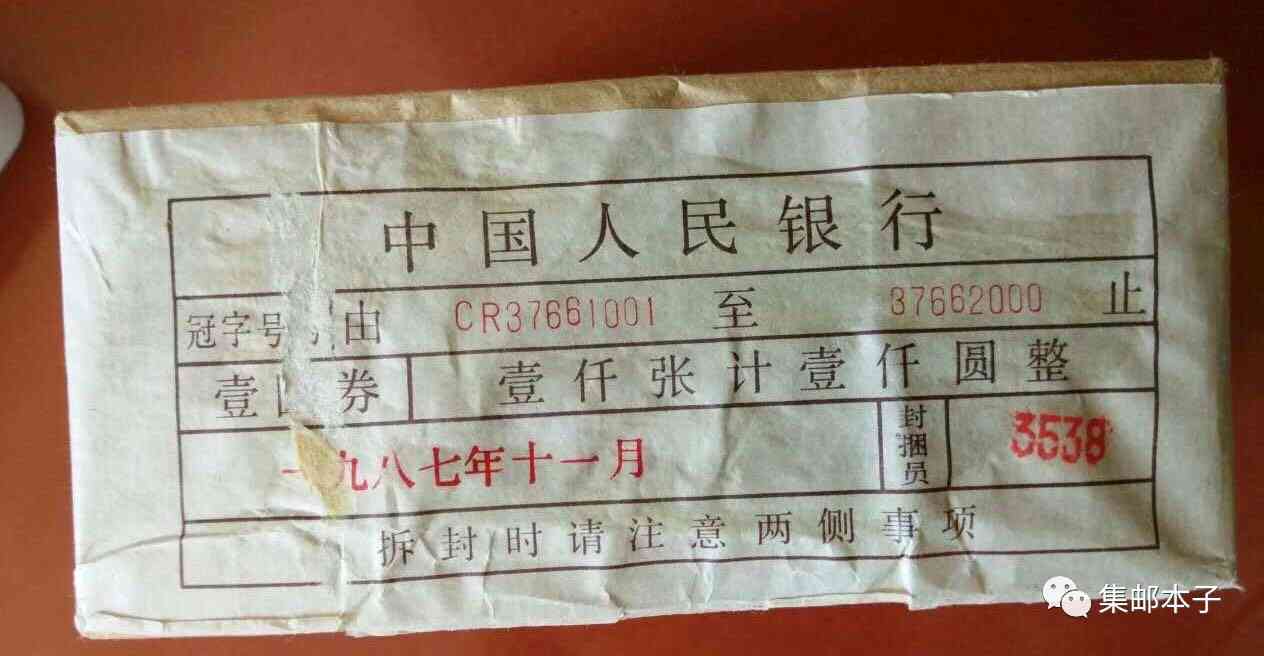 中国人民银行
冠字号 由 CR37661001 至 37662000 止
壹 券 壹仟张计壹仟圆整
一九八七年十一月 封捆员 3538
拆封时请注意两侧事项
集邮本子